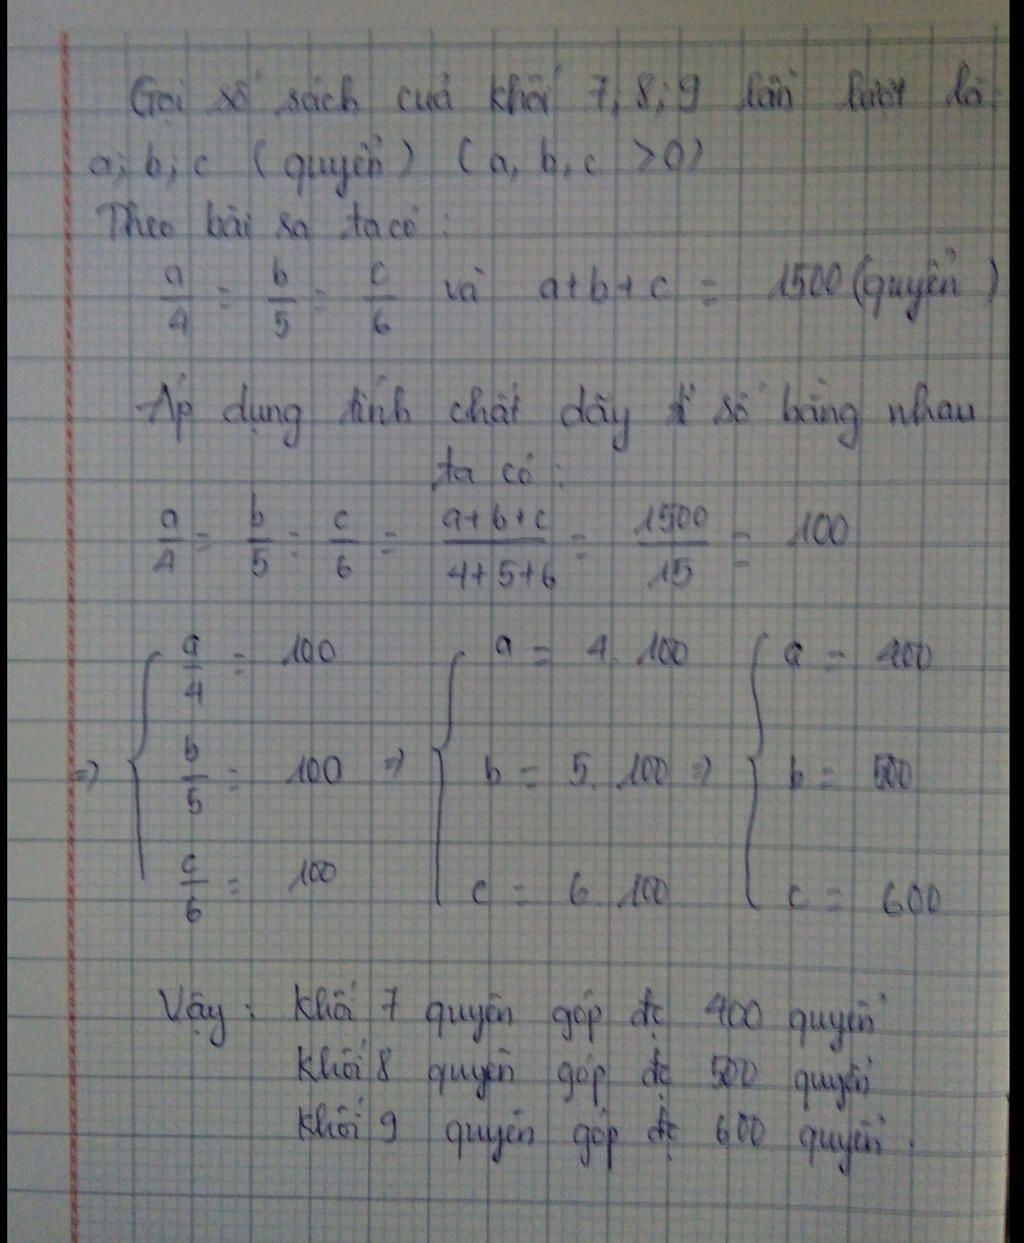 Gọi số sách của khối 7; 8; 9 lần lượt là
a; b; c (quyển) (a, b, c > 0)
Theo bài ra ta có:
a/4 = b/5 = c/6 và a+b+c = 1500 (quyển)
Áp dụng tính chất dãy tỉ số bằng nhau
ta có:
a/4 = b/5 = c/6 = (a+b+c)/(4+5+6) = 1500/15 = 100
a/4 = 100 a = 4. 100 a = 400
=> b/5 = 100 => b = 5. 100 => b = 500
c/6 = 100 c = 6. 100 c = 600
Vậy: Khối 7 quyên góp đc 400 quyển
Khối 8 quyên góp đc 500 quyển
Khối 9 quyên góp đc 600 quyển.